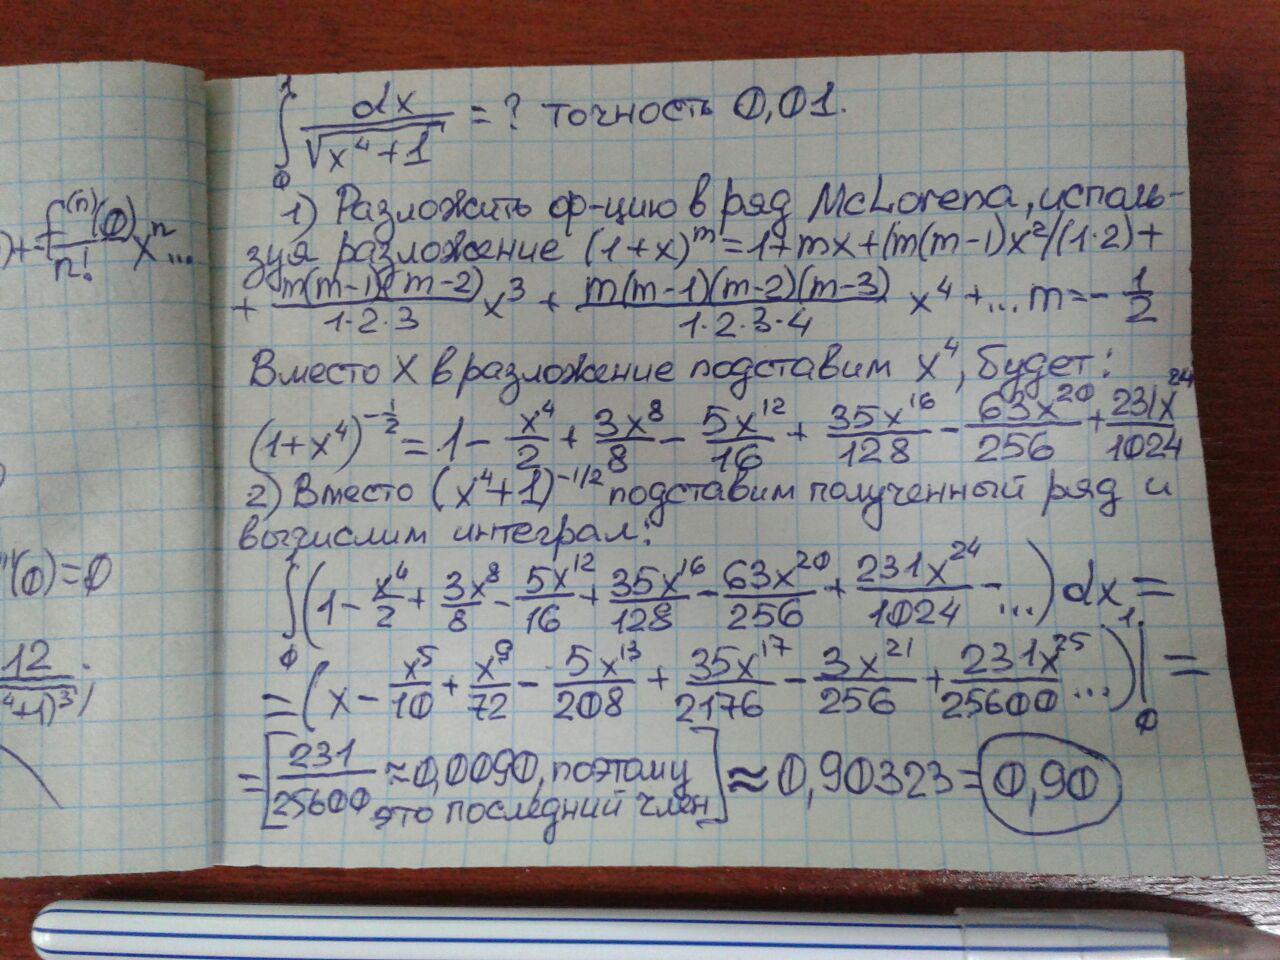 ) + f⁽ⁿ⁾(0)/n! xⁿ...
''(0)=0
12/(⁴+1)³;
∫₀¹ dx/√(x⁴+1) = ? точность 0,01.
1) Разложить ф-цию в ряд McLorena, исполь-
зуя разложение (1+x)ᵐ=1+mx+(m(m-1)x²/(1·2)+
+ m(m-1)(m-2)/(1·2·3) x³ + m(m-1)(m-2)(m-3)/(1·2·3·4) x⁴ +... m=-1/2
Вместо X в разложение подставим x⁴, будет:
(1+x⁴)^(-1/2) = 1 - x⁴/2 + 3x⁸/8 - 5x¹²/16 + 35x¹⁶/128 - 63x²⁰/256 + 231x²⁴/1024
2) Вместо (x⁴+1)^(-1/2) подставим полученный ряд и
вычислим интеграл:
∫₀¹ (1 - x⁴/2 + 3x⁸/8 - 5x¹²/16 + 35x¹⁶/128 - 63x²⁰/256 + 231x²⁴/1024 - ...) dx =
= (x - x⁵/10 + x⁹/72 - 5x¹³/208 + 35x¹⁷/2176 - 3x²¹/256 + 231x²⁵/25600 ...)|₀¹ =
= [231/25600 ≈ 0,0090, поэтому
это последний член] ≈ 0,90323 = 0,90